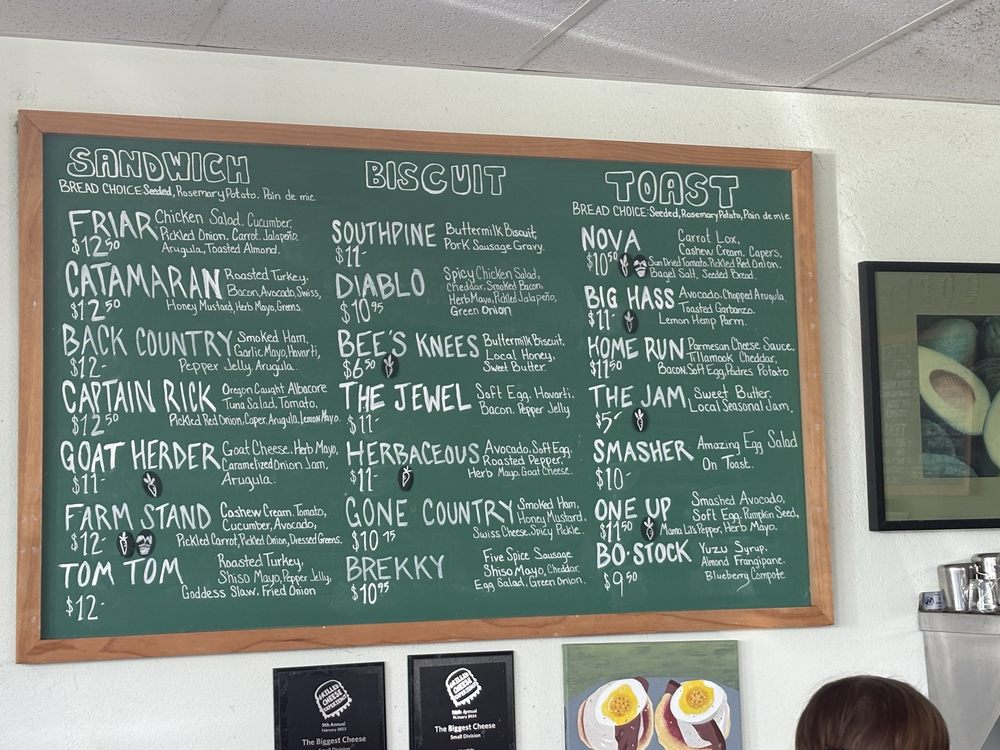 SANDWICH
BREAD CHOICE: Seeded, Rosemary Potato, Pain de mie
FRIAR Chicken Salad, Cucumber,
$12.50 Pickled Onion, Carrot, Jalapeño
Arugula, Toasted Almond.
CATAMARAN Roasted Turkey,
Bacon, Avocado, Swiss,
$12.50 Honey Mustard, Herb Mayo, Greens.
BACK COUNTRY Smoked Ham,
Garlic Mayo, Havarti,
$12- Pepper Jelly, Arugula.
CAPTAIN RICK Oregon Caught Albacore
Tuna Salad, Tomato,
$12.50 Pickled Red Onion, Caper, Arugula, Lemon Mayo.
GOAT HERDER Goat Cheese, Herb Mayo,
Caramelized Onion Jam,
$11- Arugula.
FARM STAND Cashew Cream, Tomato,
Cucumber, Avocado,
$12- Pickled Carrot, Pickled Onion, Dressed Greens.
TOM TOM Roasted Turkey,
Shiso Mayo, Pepper Jelly,
$12- Goddess Slaw, Fried Onion
BISCUIT
SOUTHPINE Buttermilk Biscuit,
$11- Pork Sausage Gravy.
DIABLO Spicy Chicken Salad,
Cheddar, Smoked Bacon,
$10.95 Herb Mayo, Pickled Jalapeño,
Green Onion
BEE'S KNEES Buttermilk Biscuit,
Local Honey,
$6.50 Sweet Butter.
THE JEWEL Soft Egg, Havarti,
$11- Bacon, Pepper Jelly
HERBACEOUS Avocado, Soft Egg,
Roasted Pepper,
$11- Herb Mayo, Goat Cheese.
GONE COUNTRY Smoked Ham,
Honey Mustard,
$10.75 Swiss Cheese, Spicy Pickle.
BREKKY Five Spice Sausage
Shiso Mayo, Cheddar
$10.95 Egg Salad, Green Onion.
TOAST
BREAD CHOICE: Seeded, Rosemary Potato, Pain de mie
NOVA Carrot Lox,
Cashew Cream, Capers,
$10.50 Sun Dried Tomato, Pickled Red Onion,
Bagel Salt, Seeded Bread
BIG HASS Avocado, Chopped Arugula
Toasted Garbanzo,
$11- Lemon Hemp Parm.
HOME RUN Parmesan Cheese Sauce,
Tillamook Cheddar,
$11.50 Bacon, Soft Egg, Padres Potato
THE JAM Sweet Butter,
$5- Local Seasonal Jam.
SMASHER Amazing Egg Salad
$10- On Toast.
ONE UP Smashed Avocado,
Soft Egg, Pumpkin Seed,
$11.50 Mama Lil's Pepper, Herb Mayo.
BO-STOCK Yuzu Syrup,
Almond Frangipane,
$9.50 Blueberry Compote
GRILLED
CHEESE
9th Annual
February 2023
The Biggest Cheese
Small Division
GRILLED
CHEESE
10th Annual
The Biggest Cheese
Small Division